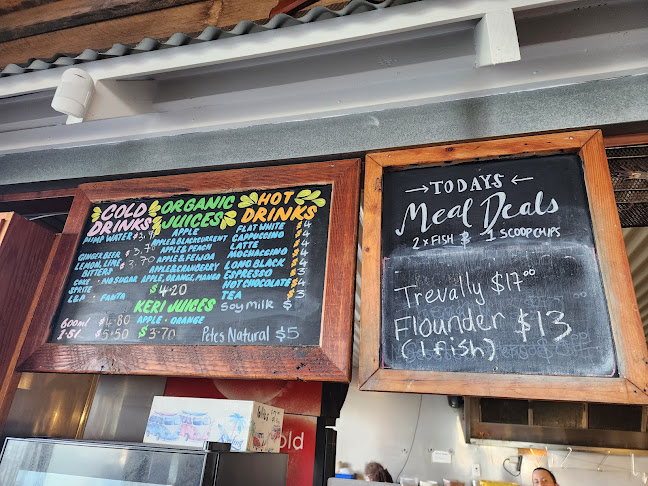 COLD
DRINKS
PUMP WATER $3.9
GINGER BEER $3.7
LEMON, LIME
BITTERS 3.70
COKE · NO SUGAR
SPRITE
L&P · FANTA
600ml $4.80
1.5L $5.50
ORGANIC
JUICES
APPLE
APPLE BLACKCURRENT
APPLE & PEACH
APPLE & FEIJOA
APPLE & CRANBERRY
APPLE, ORANGE, MANGO
$4.20
KERI JUICES
APPLE · ORANGE
$3.70
HOT
DRINKS
FLAT WHITE $4
CAPPUCCINO $4
LATTE $4
MOCHACCINO $4
LONG BLACK $4
ESPRESSO $3
HOT CHOCOLATE $4
TEA $3
Soy Milk $
Petes Natural $5
→TODAYS←
Meal Deals
2 x FISH & 1 SCOOP CHIPS
Trevally $17.00
Flounder $13
(1 fish)
old